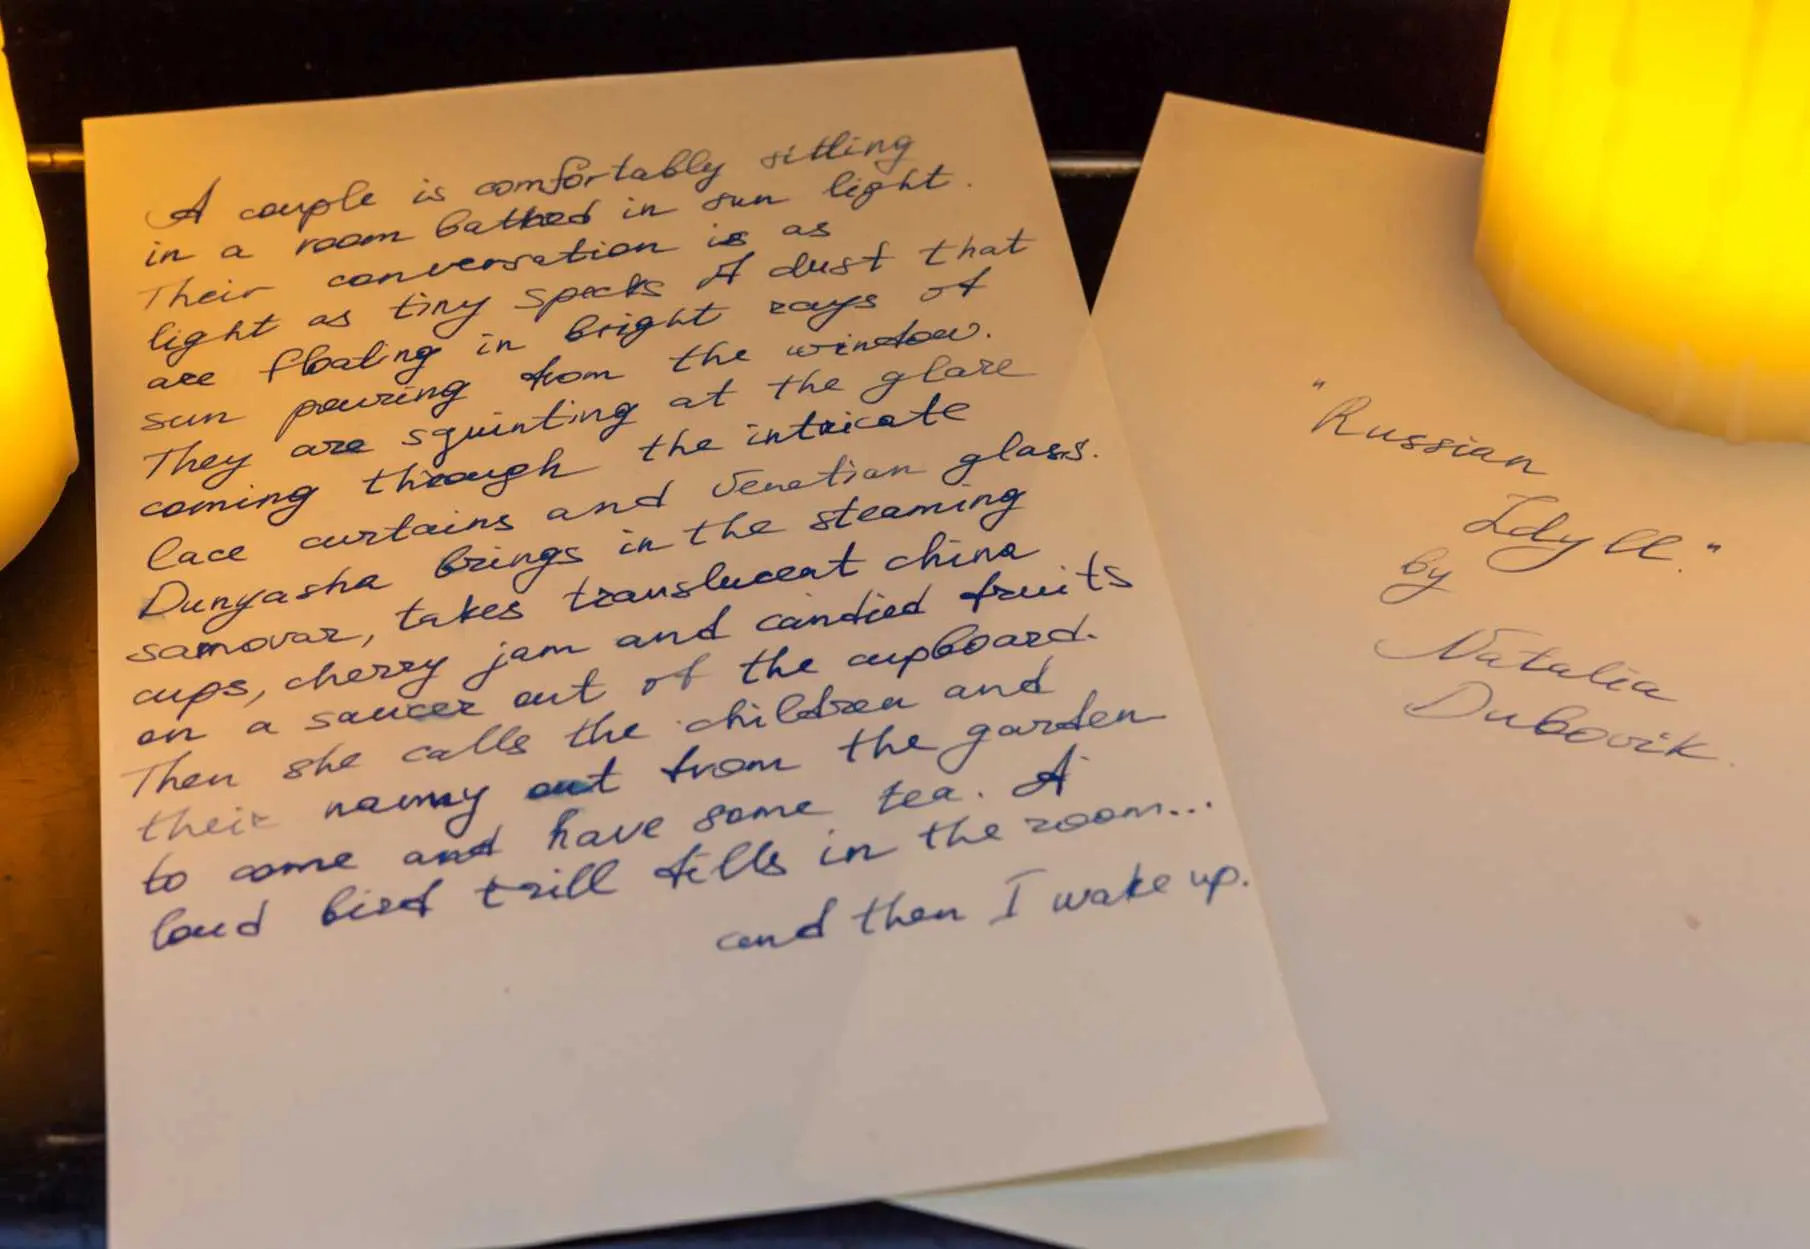 A couple is comfortably sitting
in a room bathed in sun light.
Their conversation is as
light as tiny specks of dust that
are floating in bright rays of
sun pouring from the window.
They are squinting at the glare
coming through the intricate
lace curtains and Venetian glass.
Dunyasha brings in the steaming
samovar, takes translucent china
cups, cherry jam and candied fruits
on a saucer out of the cupboard.
Then she calls the children and
their nanny out from the garden
to come and have some tea. A
loud bird trill fills in the room...
and then I wake up.
"Russian
Idyll."
by
Natalia
Dubovik.